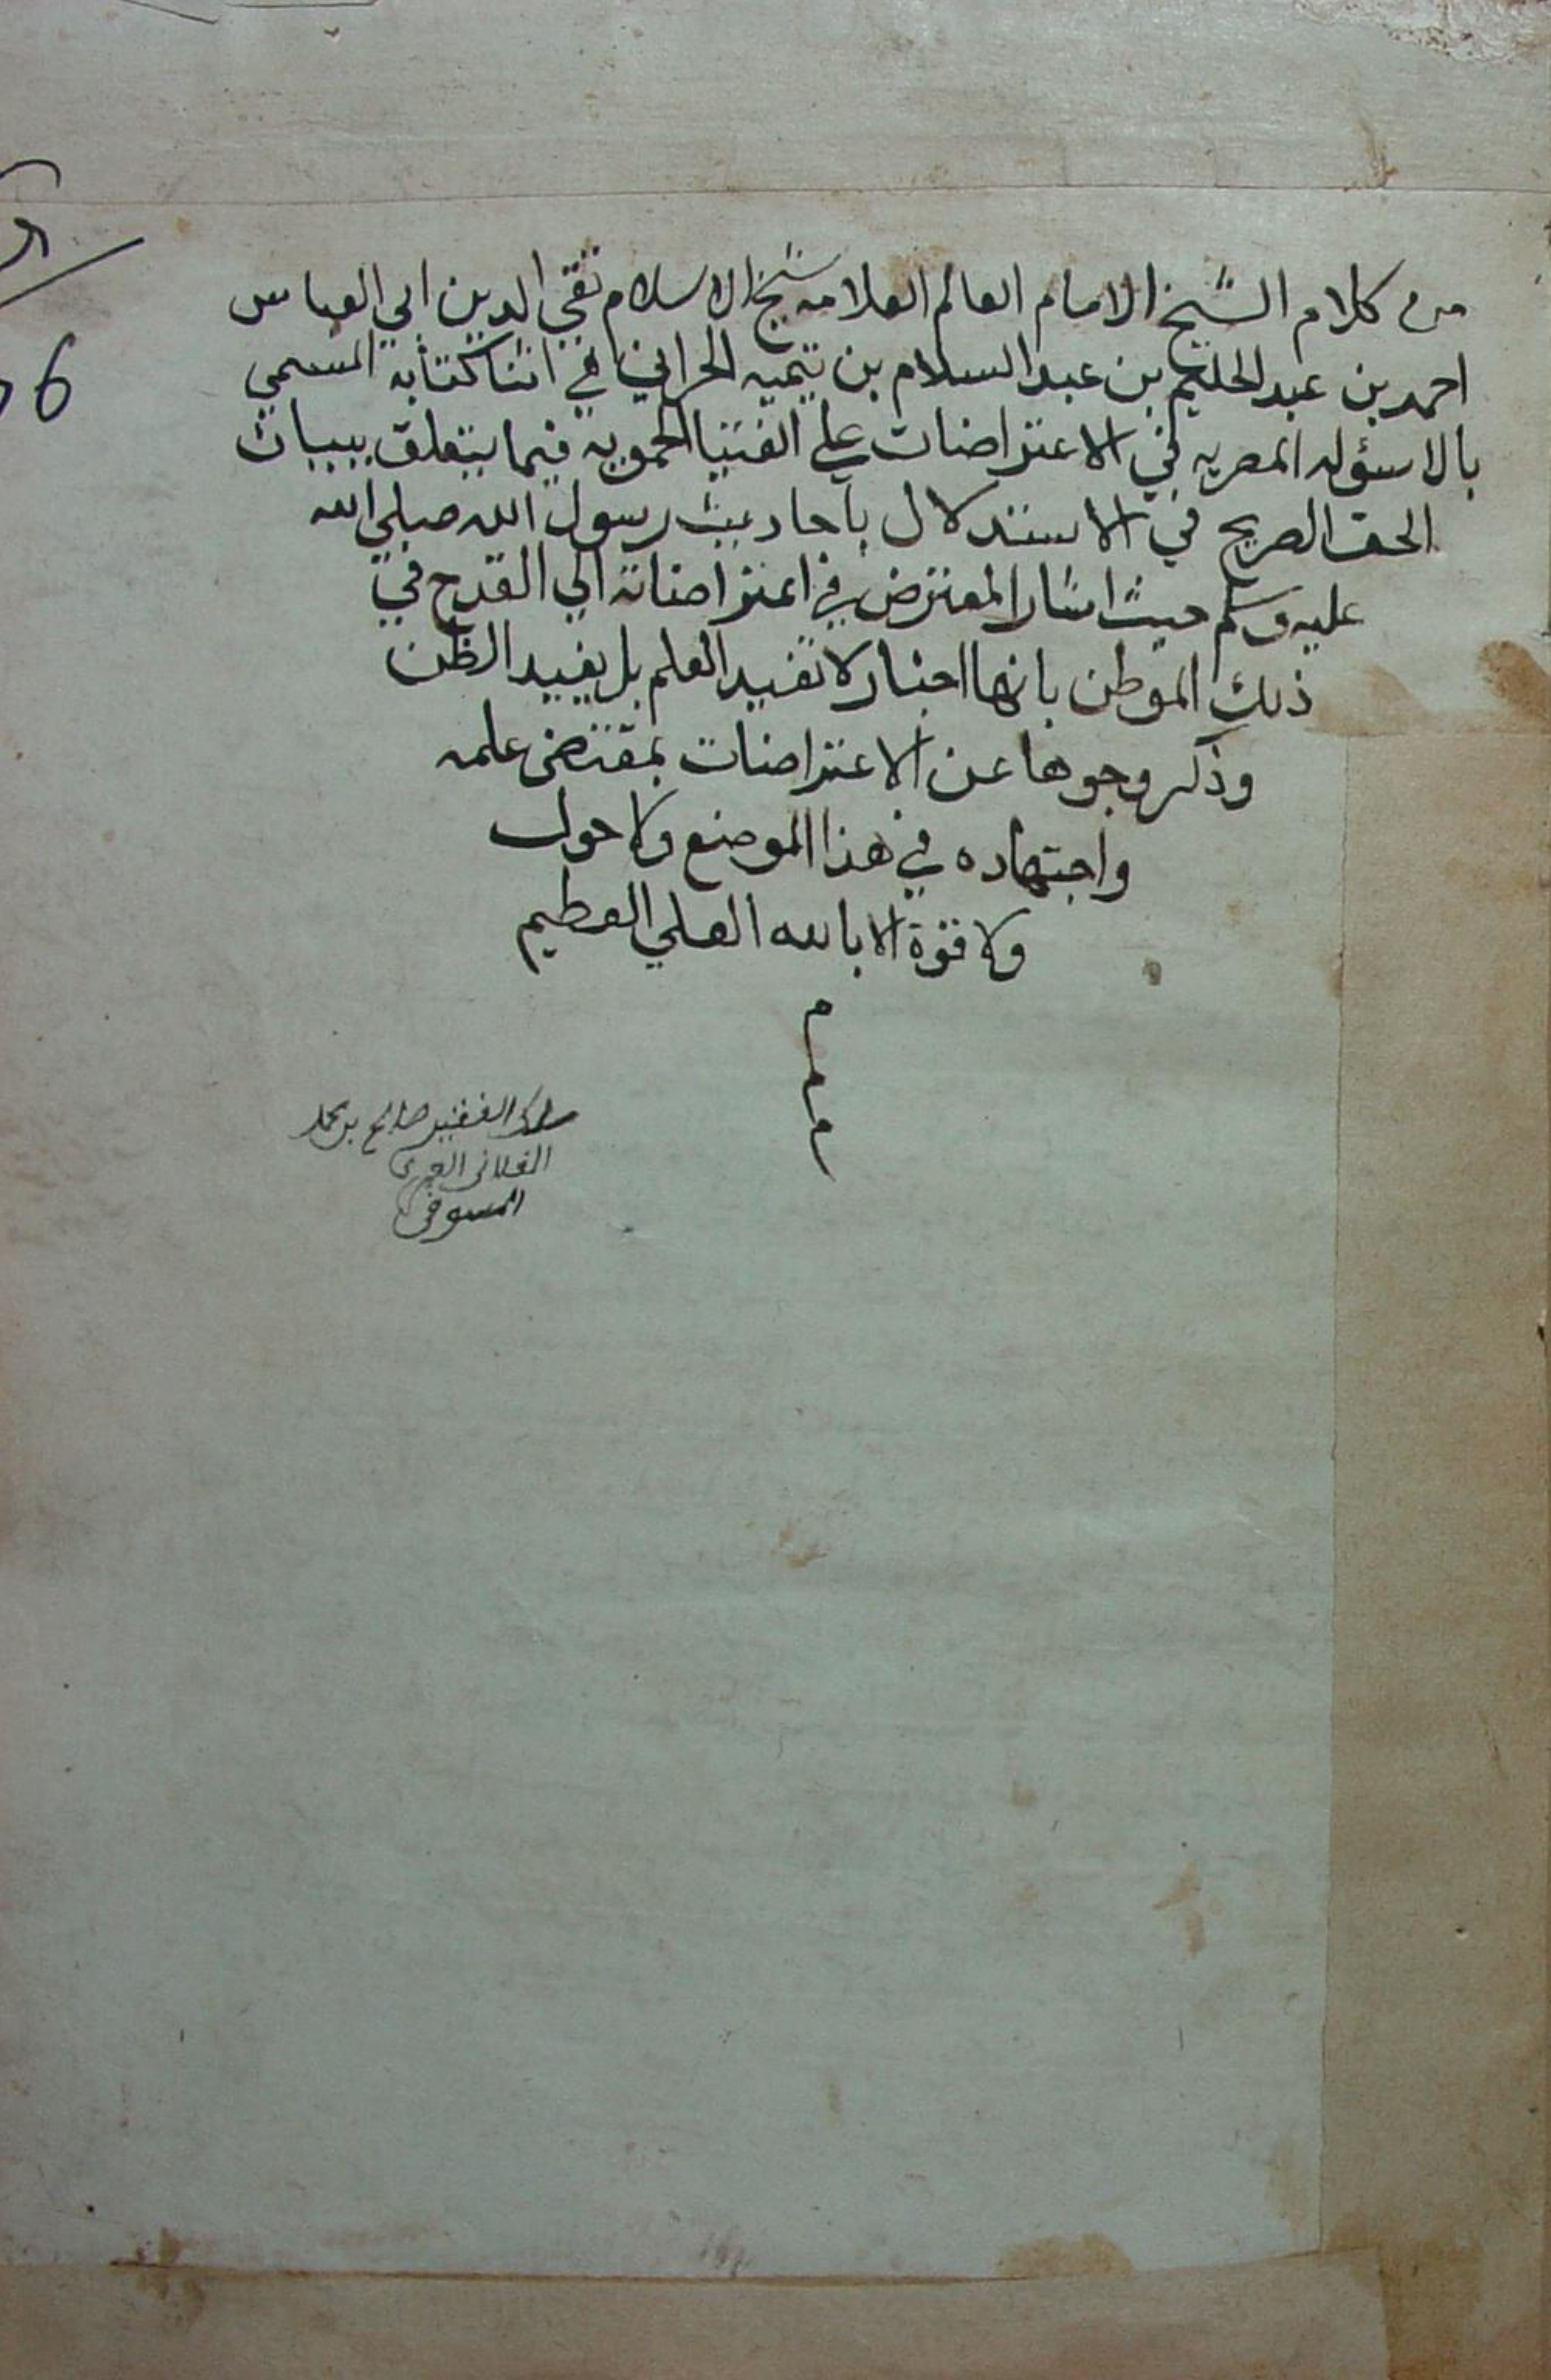 من كلام الشيخ الامام العالم العلامه شيخ الاسلام تقي الدين ابي العباس
احمد بن عبد الحليم بن عبد السلام بن تيميه الحراني في اثنا كتابه المسمي
بالاسؤله المصريه في الاعتراضات علي الفتيا الحمويه فيما يتعلق ببيان
الحق الصريح في الاستدلال باحاديث رسول الله صلي الله
عليه وسلم حيث اشار المعترض في اعتراضاته الي القدح في
ذلك الموطن بانها اخبار لا تفيد العلم بل يفييد الظن
وذكر وجوها عن الاعتراضات بمقتضى علمه
واجتهاده في هذا الموضع ولا حول
ولا قوة الا بالله العلي العظيم
م
م
م
ملك الفقير صالح بن محمد
الفلاني العمري
المسوفي
6